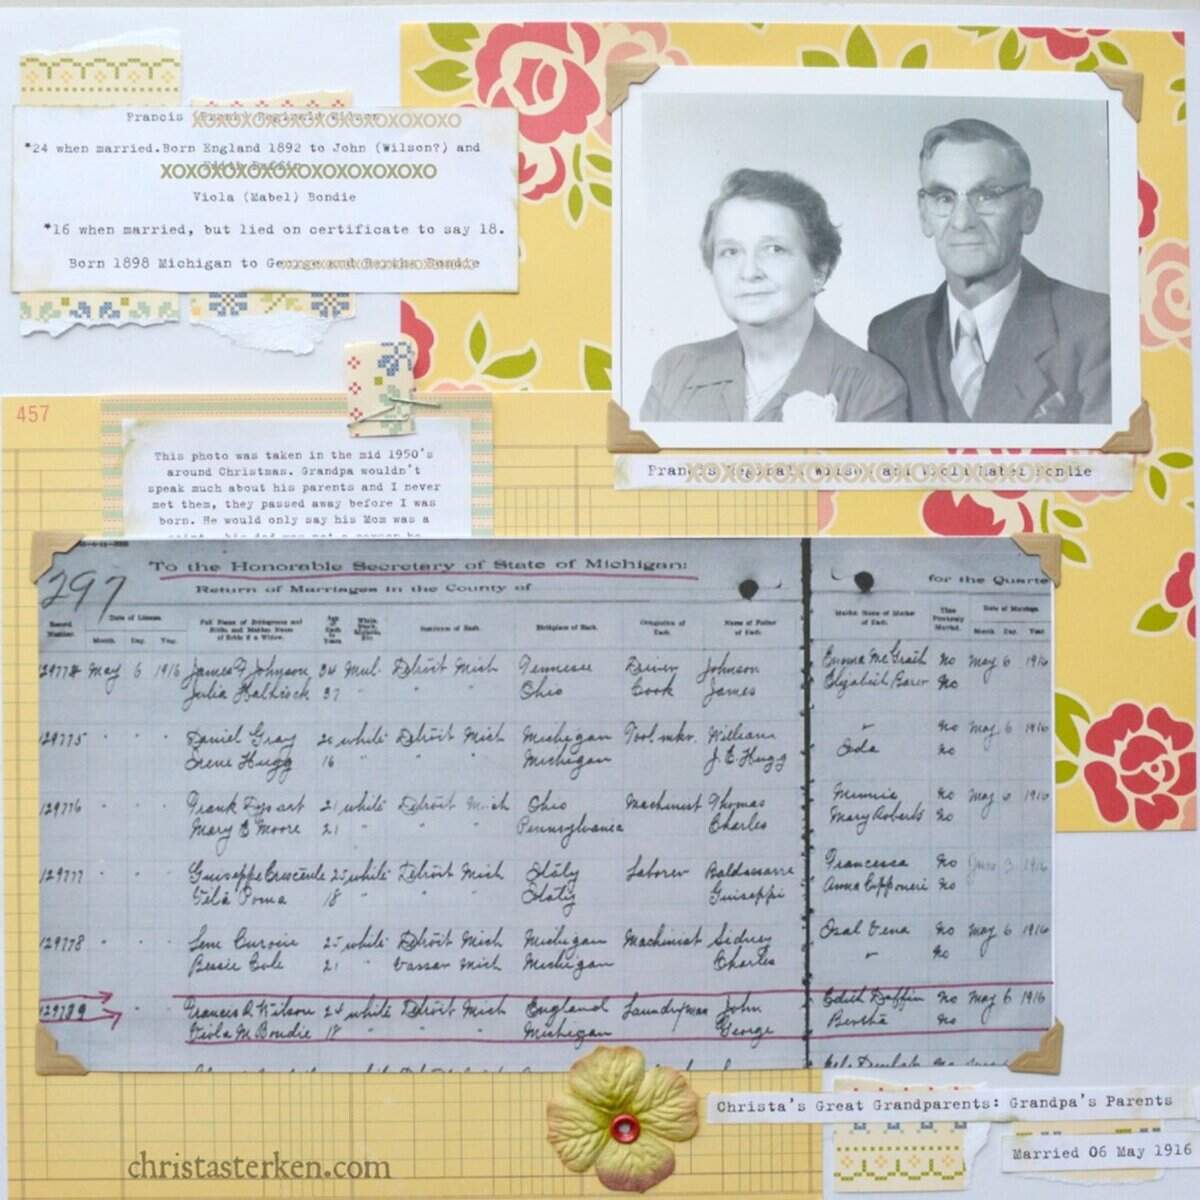 Francis (Frank) Reginald Wilson
XOXOXOXOXOXOXOXOXOXOXO
*24 when married.Born England 1892 to John (Wilson?) and
XOXOXOXOXOXOXOXOXOXOXO
Viola (Mabel) Bondie
*16 when married, but lied on certificate to say 18.
Born 1898 Michigan to George and Bertha Bondie
457
This photo was taken in the mid 1950's
around Christmas. Grandpa wouldn't
speak much about his parents and I never
met them, they passed away before I was
born. He would only say his Mom was a
Francis Reginald Wilson and Mabel Bondie
297
To the Honorable Secretary of State of Michigan:
Return of Marriages in the County of
for the Quarte
Record Number.
Date of License.
Month. Day. Year.
Full Name of Bridegroom and Bride, and Maiden Name of Bride if a Widow.
Age of Each in Years
Residence of Each.
Birthplace of Each.
Occupation of Each.
Name of Father of Each.
Maiden Name of Mother of Each.
Date of Marriage.
Month Day. Year
May 6 1916 James F Johnson 34 Mul. Detroit Mich Tennessee Driver Johnson Emma McGrath no May 6 1916
Julia 37 " " Ohio Cook James Elizabeth no
129775 " " " Daniel Gray white Detroit Mich Michigan Tool mkr. William no May 6 1916
Irene Hugg 16 " " Michigan J. E. Hugg Ada no
129776 " " " Frank 21 white Detroit Mich Ohio Machinist Thomas Minnie no May 6 1916
Mary E Moore 21 " " " Pennsylvania Charles Mary Roberts no
129777 " " " Guiseppe 25 white Detroit Mich Italy Laborer Baldassarre Francesca no June 3 1916
18 " " " Italy Guiseppi Anna no
129778 " " " 25 white Detroit Mich Michigan Machinist Sidney no May 6 1916
Bessie Cole 21 " Vassar Mich Michigan Charles no
Francis R Wilson 24 white Detroit Mich England Laundryman John Edith Daffin no May 6 1916
Viola M Bondie 18 " " " Michigan George Bertha no
Christa's Great Grandparents: Grandpa's Parents
Married 06 May 1916
christasterken.com